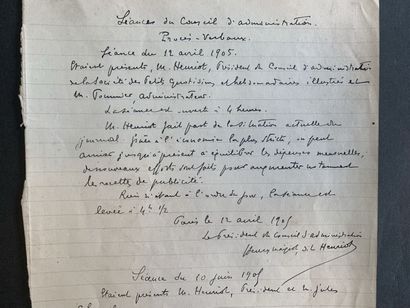 Séances du Conseil d'administration.
Procès-Verbaux.
Séance du 12 avril 1905.
Etaient présents, M. Henriot, Président du Conseil d'administration
de la Société des Petits Quotidiens et hebdomadaires illustrés et
M. administrateur.
La séance est ouverte à 4 heures.
M. Henriot fait part de la situation actuelle du
journal grâce à l'économie la plus stricte, on peut
arriver jusqu'à présent à équilibrer les dépenses mensuelles,
de nouveaux efforts sont faits pour augmenter notamment
les recettes de publicité.
Rien n'étant à l'ordre du jour, la séance est
levée à 4h 1/2
Paris le 12 avril 1905
Le Président du Conseil d'administration
Henriot
Séance du 10 juin 1905
Etaient présents M. Henriot, Président et M. Jules